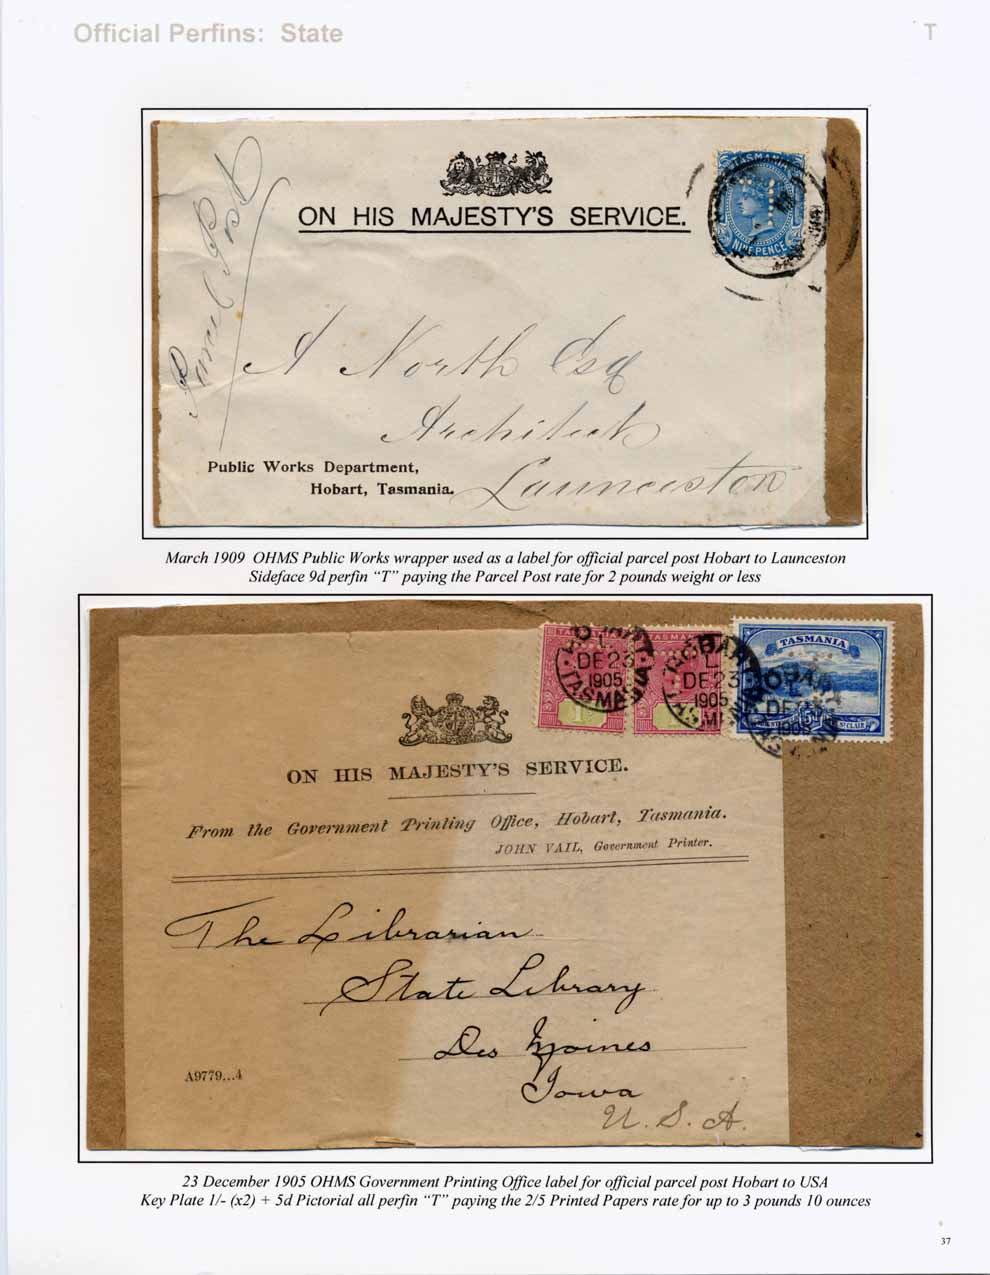 Official Perfins: State
T
Parcel Post
ON HIS MAJESTY'S SERVICE.
TASMANIA
NINEPENCE
A North Esq
Architect
Public Works Department,
Hobart, Tasmania.
Launceston
March 1909 OHMS Public Works wrapper used as a label for official parcel post Hobart to Launceston
Sideface 9d perfin "T" paying the Parcel Post rate for 2 pounds weight or less
HOBART
L
DE 23
1905
TASMANIA
HOBART
L
DE 23
1905
TASMANIA
TASMANIA
HOBART
1905
ON HIS MAJESTY'S SERVICE.
From the Government Printing Office, Hobart, Tasmania.
JOHN VAIL, Government Printer.
The Librarian
State Library
Des Moines
Iowa
U.S.A.
A9779...4
23 December 1905 OHMS Government Printing Office label for official parcel post Hobart to USA
Key Plate 1/- (x2) + 5d Pictorial all perfin "T" paying the 2/5 Printed Papers rate for up to 3 pounds 10 ounces
37